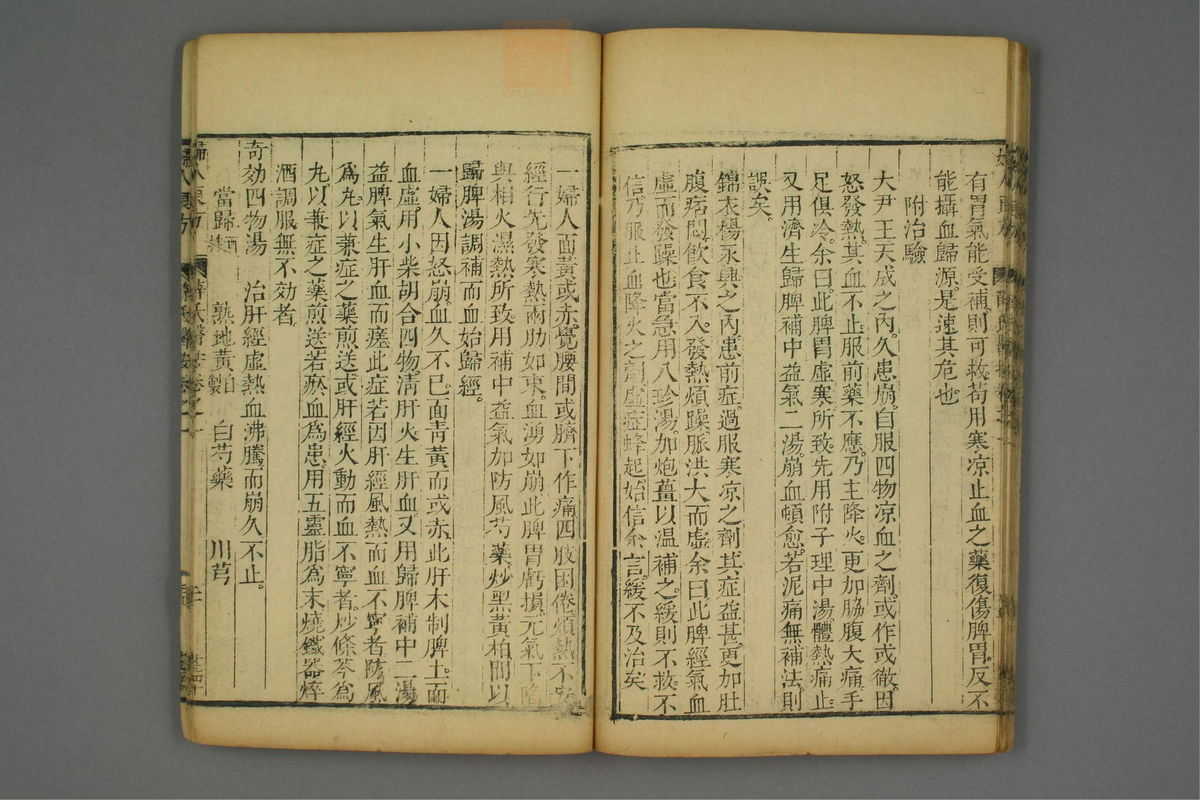 有胃氣能受補則可救苟用寒凉止血之藥復傷脾胃反不
能攝血歸源是速其危也
附治驗
大尹王天成之內久患崩自服四物凉血之劑或作或徹因
怒發熱其血不止服前藥不應乃主降火更加脇腹大痛手
足俱冷余曰此脾胃虛寒所致先用附子理中湯體熱痛止
又用濟生歸脾補中益氣二湯崩血頓愈若泥痛無補法則
誤矣
錦衣楊永興之內患前症過服寒凉之劑其症益甚更加肚
腹痞悶飲食不入發熱煩躁脈洪大而虛余曰此脾經氣血
虛而發躁也當急用八珍湯加炮薑以温補之緩則不救不
信乃服止血降火之劑虛症蜂起始信余言緩不及治矣
一婦人面黃或赤覺腰間或臍下作痛四肢困倦煩熱不安
經行先發寒熱兩肋如束血湧如崩此脾胃虧損元氣下陷
與相火濕熱所致用補中益氣加防風芍藥炒黑黃柏間以
歸脾湯調補而血始歸經
一婦人因怒崩血久不已面青黃而或赤此肝木制脾土而
血虛用小柴胡合四物清肝火生肝血又用歸脾補中二湯
益脾氣生肝血而瘥此症若因肝經風熱而血不寧者防風
爲丸以兼症之藥煎送或肝經火動而血不寧者炒條芩爲
丸以兼症之藥煎送若瘀血爲患用五靈脂爲末燒鐵器焠
酒調服無不効者
奇効四物湯 治肝經虛熱血沸騰而崩久不止
當歸酒 熟地黃自製 白芍藥 川芎
婦人良方 薛氏醫按卷之一